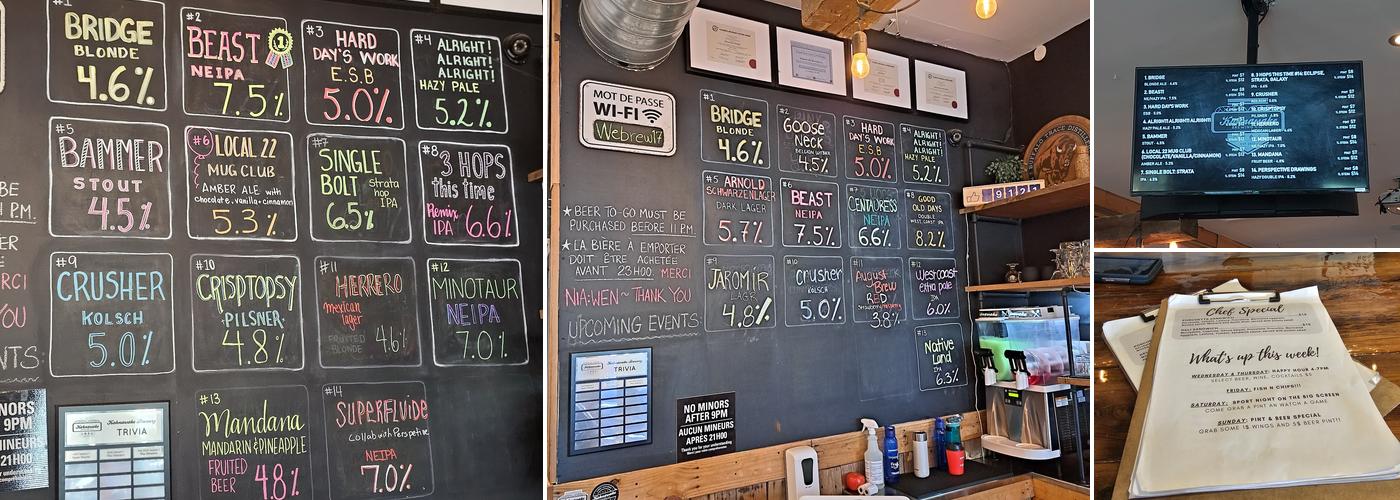 #1
BRIDGE
BLONDE
4.6%
#2
BEAST
1
NEIPA
7.5%
#3
HARD
DAY'S WORK
E.S.B
5.0%
#4
ALRIGHT!
ALRIGHT!
ALRIGHT!
HAZY PALE
5.2%
#5
BAMMER
STOUT
4.5%
#6
LOCAL 22
MUG CLUB
AMBER ALE with
chocolate, vanilla + cinnamon
5.3%
#7
SINGLE
BOLT
strata
hop
IPA
6.5%
#8
3 HOPS
this time
Remix
IPA 6.6%
#9
CRUSHER
KOLSCH
5.0%
#10
CRISPTOPSY
PILSNER
4.8%
#11
HERRERO
mexican
lager
FRUITED
BLONDE
4.6%
#12
MINOTAUR
NEIPA
7.0%
#13
Mandana
MANDARIN & PINEAPPLE
FRUITED
BEER
4.8%
#14
SUPERFLUIDE
Collab with Perspective
NEIPA
7.0%
TRIVIA
MOT DE PASSE
WI-FI
Webrew17
★ BEER TO-GO MUST BE
PURCHASED BEFORE 11 PM.
★ LA BIÈRE À EMPORTER
DOIT ÊTRE ACHETÉE
AVANT 23H00. MERCI
NIA:WEN ~ THANK YOU
UPCOMING EVENTS:
TRIVIA
NO MINORS
AFTER 9PM
AUCUN MINEURS
APRÈS 21H00
Thank you for your understanding
#1
BRIDGE
BLONDE
4.6%
#2
GOOSE
NECK
4.5%
#3
HARD
DAY'S WORK
E.S.B
5.0%
#4
ALRIGHT!
ALRIGHT!
ALRIGHT!
HAZY PALE
5.2%
#5 ARNOLD
SCHWARZENLAGER
DARK LAGER
5.7%
#6
BEAST
NEIPA
7.5%
#7
CENTAURESS
NEIPA
6.6%
#8 GOOD
OLD DAYS
DOUBLE
WEST COAST IPA
8.2%
#9
JAROMIR
LAGER
4.8%
#10
Crusher
KOLSCH
5.0%
#11
August
Brew
RED
3.8%
#12
Westcoast
extra pale
IPA
6.0%
#13
Native
Land
IPA
6.3%
9121
1. BRIDGE
BLONDE ALE 4.6%
2. BEAST
3. HARD DAY'S WORK
4. ALRIGHT! ALRIGHT! ALRIGHT!
HAZY PALE ALE 5.2%
5. BAMMER
6. LOCAL 22 MUG CLUB
(CHOCOLATE/VANILLA/CINNAMON)
7. SINGLE BOLT: STRATA
8. 3 HOPS THIS TIME #14: ECLIPSE,
STRATA, GALAXY
9. CRUSHER
10. CRISPTOPSY
11. HERRERO
12. MINOTAUR
13. MANDANA
14. PERSPECTIVE DRAWINGS
HAZY DOUBLE IPA 8.2%
Chef Special
What's up this week!
WEDNESDAY & THURSDAY: HAPPY HOUR 4-7PM
SELECT BEER, WINE, COCKTAILS $5
FRIDAY: FISH N CHIPS!!!
SATURDAY: SPORT NIGHT ON THE BIG SCREEN
COME GRAB A PINT AN WATCH A GAME
SUNDAY: PINT & BEER SPECIAL
GRAB SOME 1$ WINGS AND 5$ BEER PINT!!!